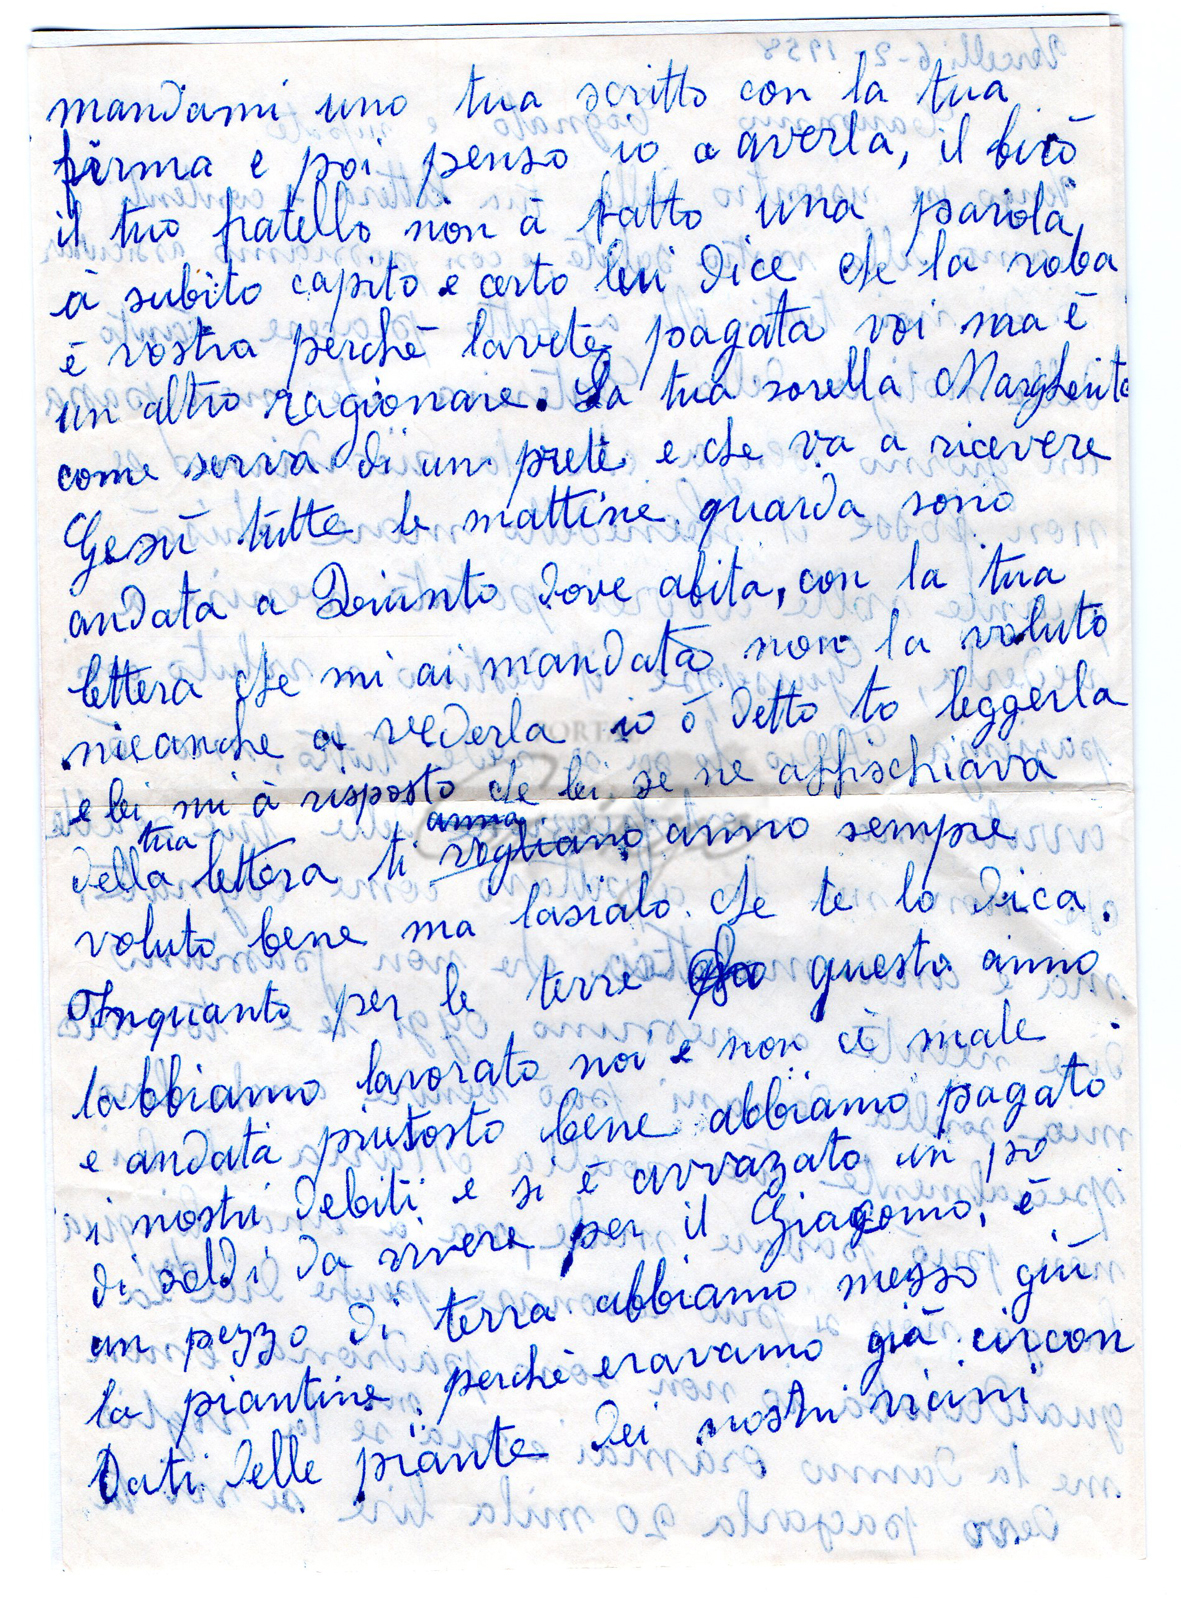 mandami uno tua scritto con la tua
firma e poi penso io a averla, il birò
il tuo fratello non à fatto una parola,
à subito capito e certo lui dice che la roba
è vostra perchè lavete pagata voi ma è
un altro ragionare. La tua sorella Margherita
come serva di un prete e che va a ricevere
Gesù tutte le mattine, guarda sono
andata a dove abita, con la tua
lettera che mi ai mandata non la voluto
nieanche a vederla io ò detto to leggerla
e lei mi à risposto che lei se ne affischiava
della tua lettera ti anno sempre
voluto bene ma lasialo che te lo dica.
Inquanto per le terre questo anno
labbiamo lavorato noi e non cè male
e andata piutosto bene abbiamo pagato
i nostri debiti e si è avvazato un po
di soldi da vivere per il Giagomo, è
un pezzo di terra abbiamo messo giù
la piantine perchè eravamo già circon
dati delle piante dei nostri vicini